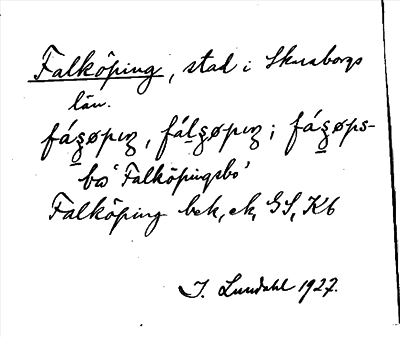 Falköping, stad i Skaraborgs
län.
fáʂøpɪŋ, fáʟʂøpɪŋ; fáʂøps-
bo 'Falköpingsbo'
Falköping bek, ek, GS, Kb
I. Lundahl 1927.